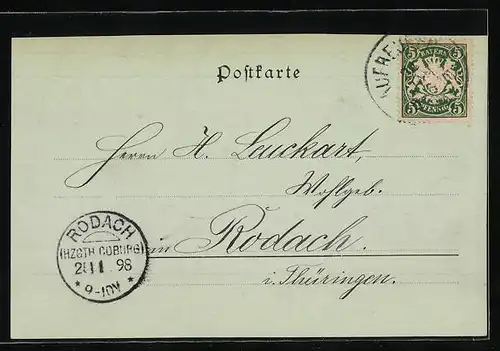 Postkarte
BAYERN
5 5
5 5
PFENNIG
Herrn H. Leuckart,
Wohlgeb.
in Rodach.
i. Thüringen.
RODACH
(HZGTH. COBURG)
98
* 9-10V *